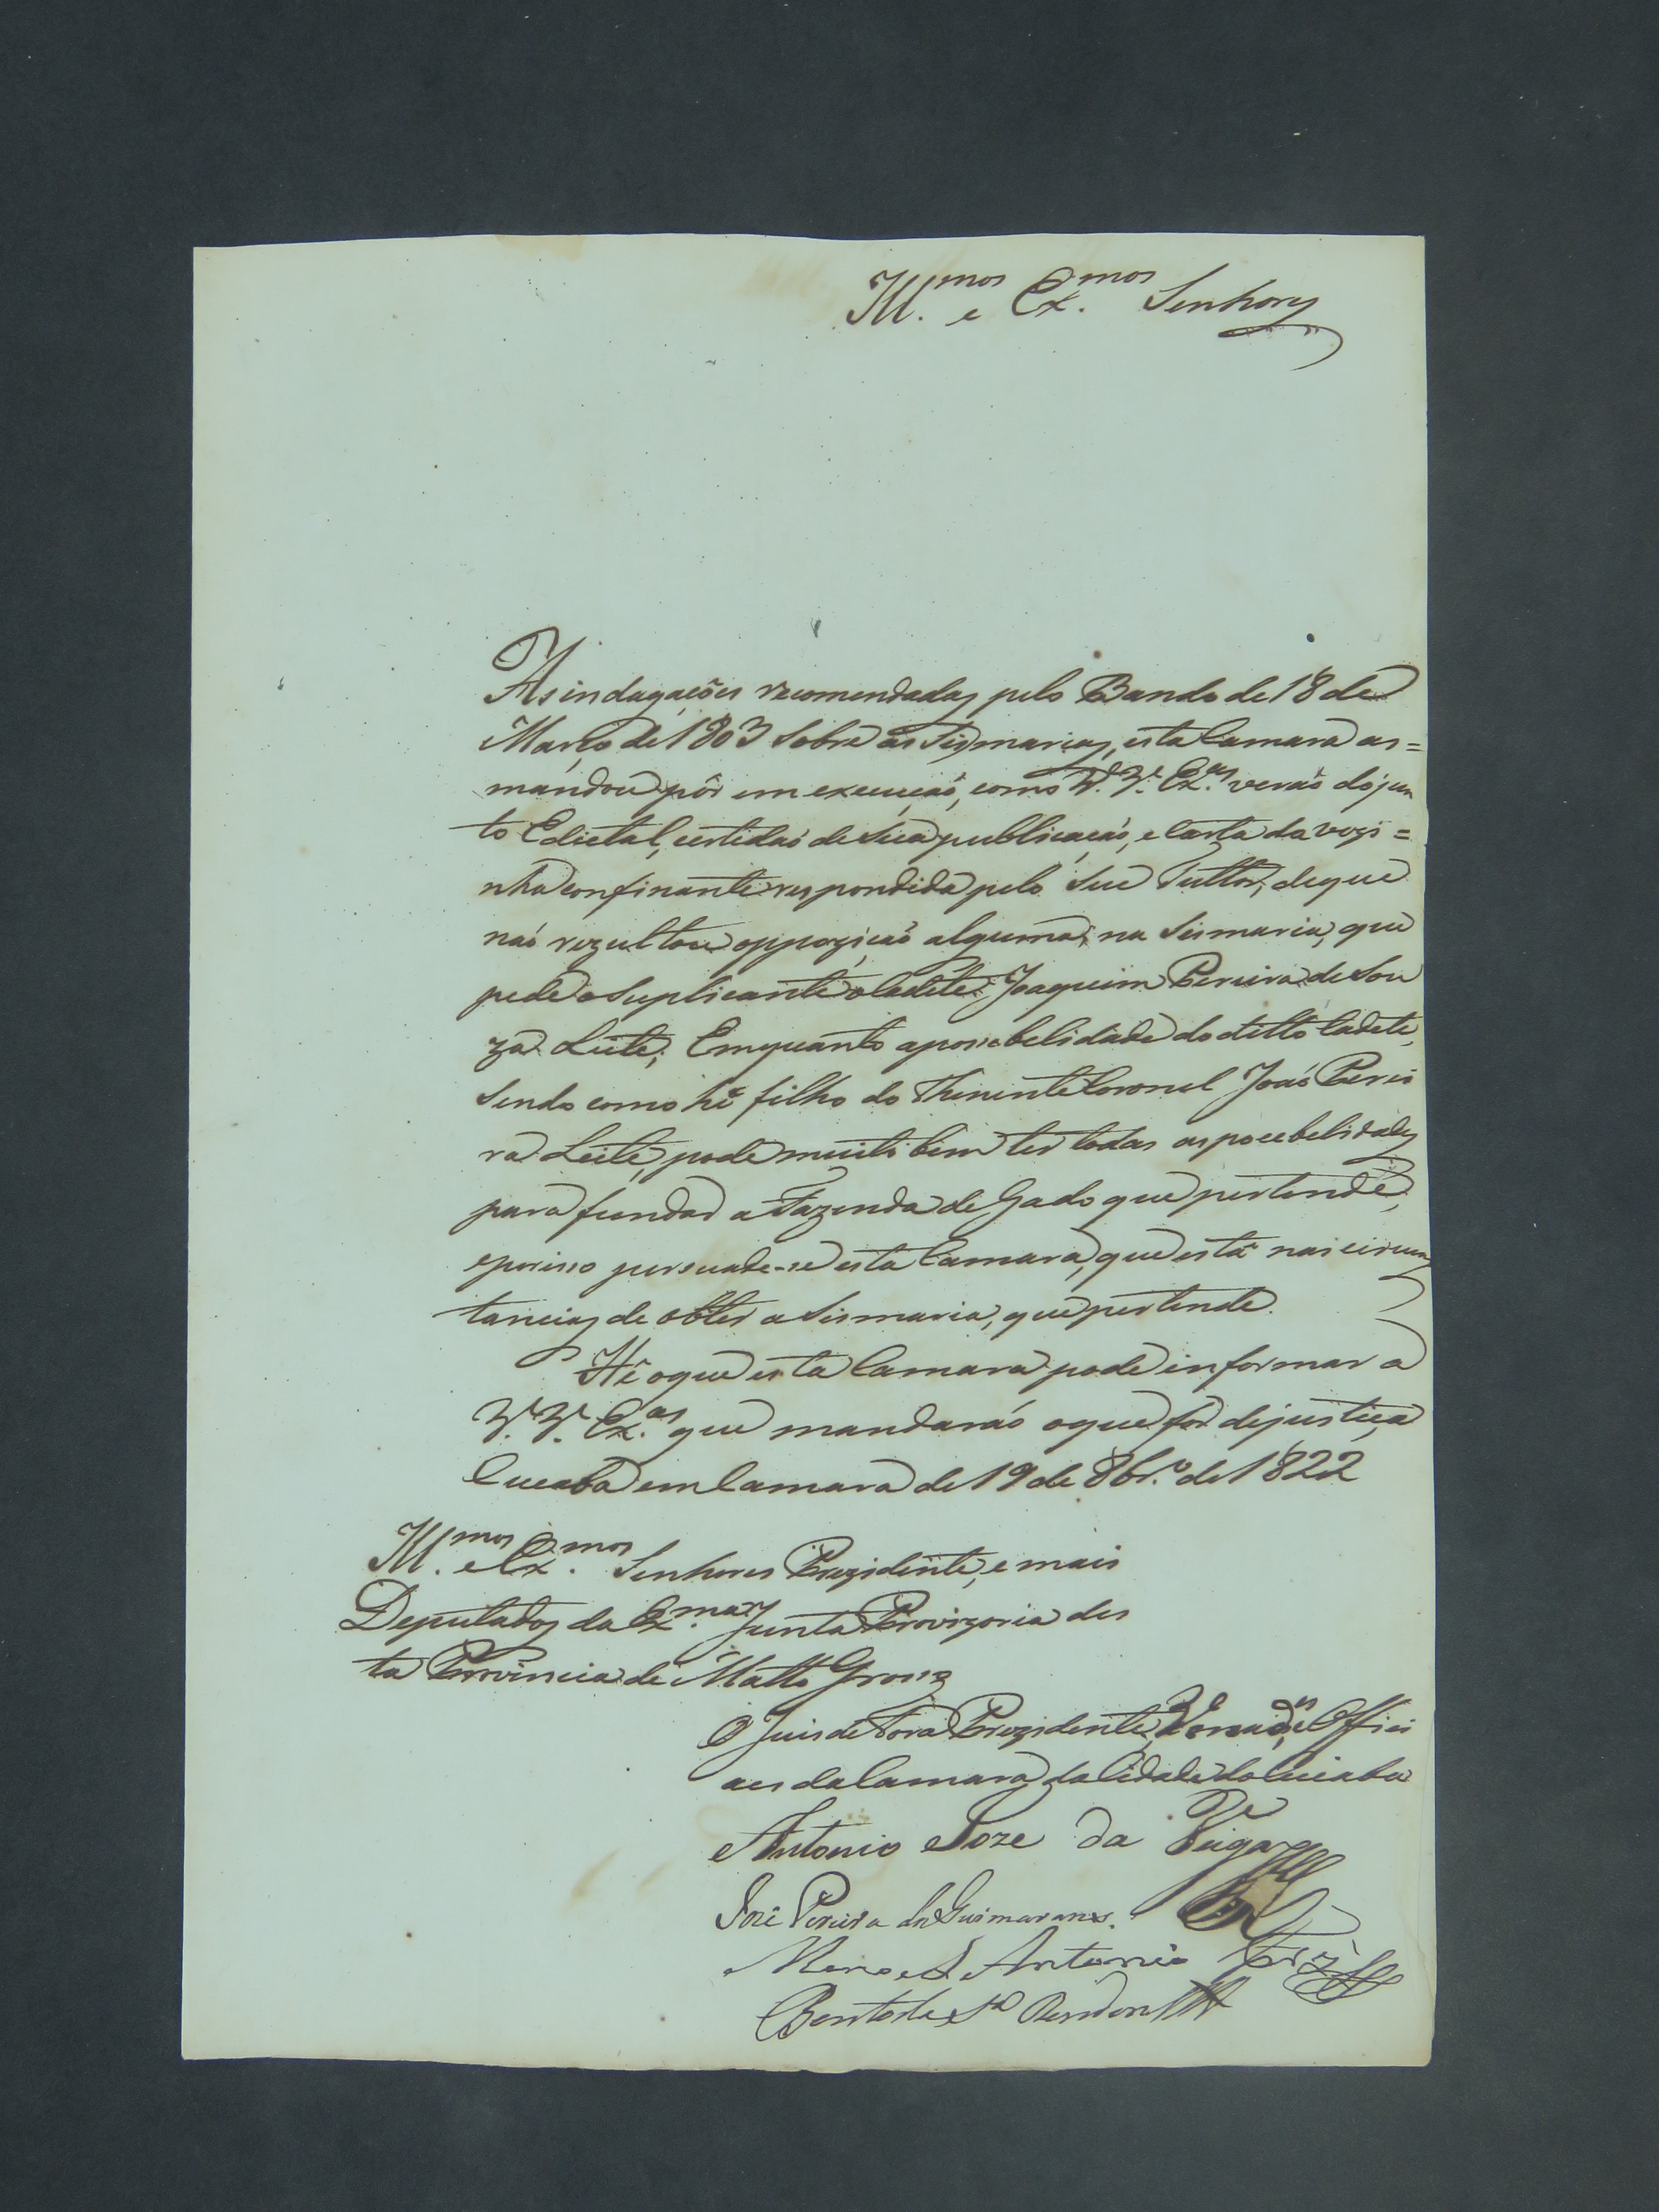 Ill.mos e Ex.mos Senhores
As indagações recomendadas pelo Bando de 18 de
Março de 1803 sobre as Sismarias, esta Camara as=
mandou pôr em execução, como V.V. Ex.as verão do jun
to Edictal, certidaõ de sua publicaçaõ, e Carta da vezi=
nha confinante respondida pelo seu Tuttor, de que
naõ rezultou oppoziçaõ alguma na Sismaria, que
pede o Suplicante o Cadete Joaquim Pereira de Sou
za Leite; Emquanto a possebelidade do ditto Cadete,
sendo como hé filho do Thenente Coronel Joaõ Perei
ra Leite, pode muito bem ter todas as pocebelidades
para fundar a Fazenda de Gado que pertende,
e por isso persuade-se esta Camara, que está nas circuns
tancias de obter a Sismaria, que pertende.
Hé o que esta Camara pode informar a
V.V. Ex.as que mandaraõ o que for de justiça
Cuiaba em Camara de 19 de 8br.o de 1822
Ill.mos e Ex.mos Senhores Prezidente, e mais
Deputados da Ex.ma Junta Provizoria des
ta Provincia de Matto Grosso
O Juis de Fora Prezidente, Veread.es e Offici
aes da Camara da Cidade do Cuiaba
Antonio Joze da Veiga
José Pereira dos Guimaraens.
Manoel Antonio
Bento de Rondon